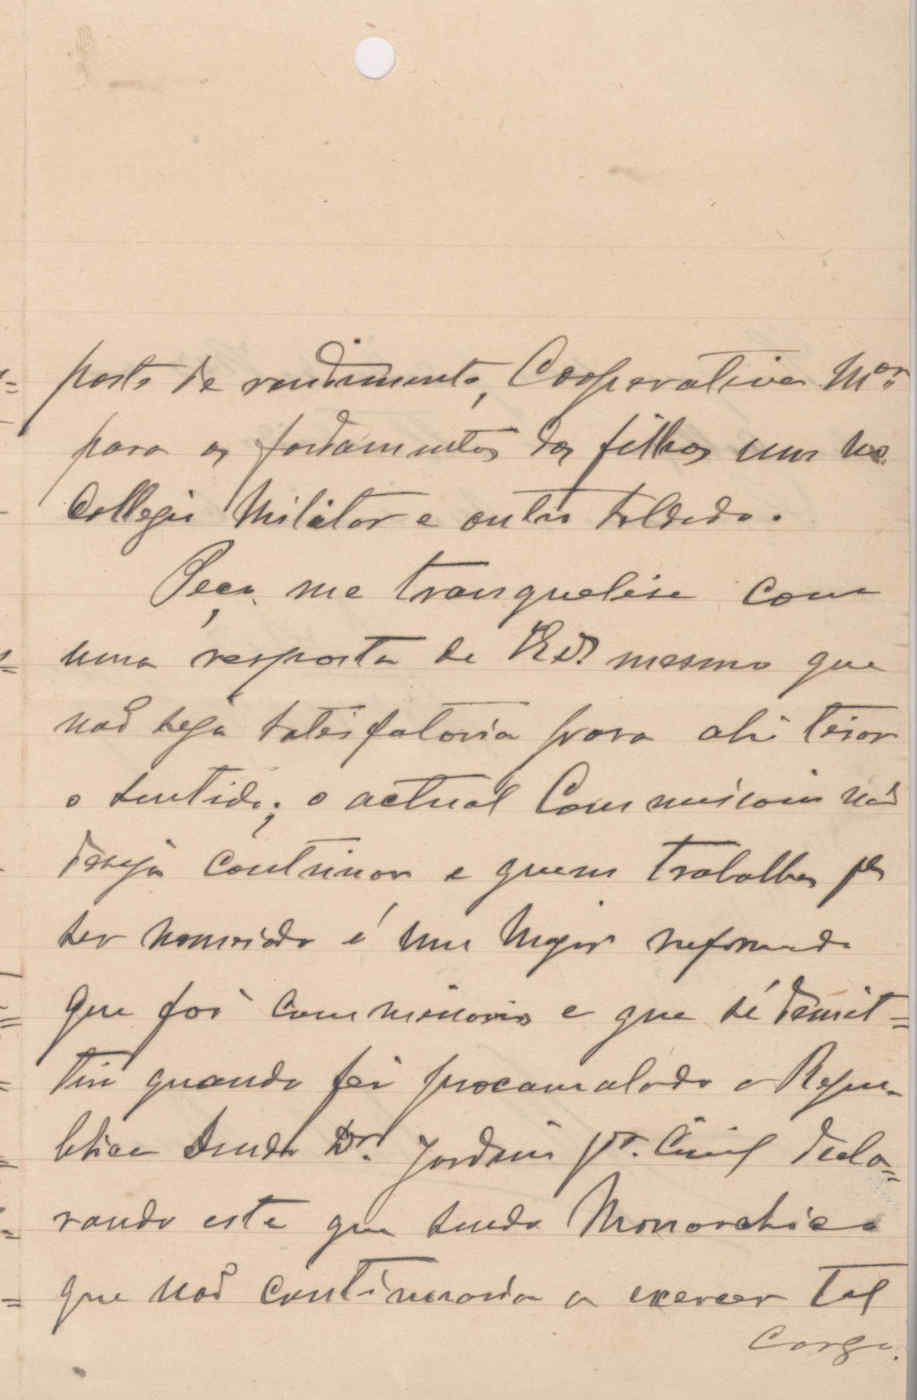 posto de rendimento, Cooperativa M.ar
para os fardamentos dos filhos um no
Collegio Militar e outro soldado.
Peço me tranquelise com
uma resposta de mesmo que
não seja satisfatoria para ahi tirar
o sentido; o actual Commissario não
deseja continuar e quem trabalha pa
ser nomeiado é um Major reformado
que foi Commissario e que sé demit=
tiu quando foi procamalada a Repu-
blica sendo Dr. Jordain Civil decla=
rando este que sendo Monarchico
que não continuaria a exercer tal
cargo.